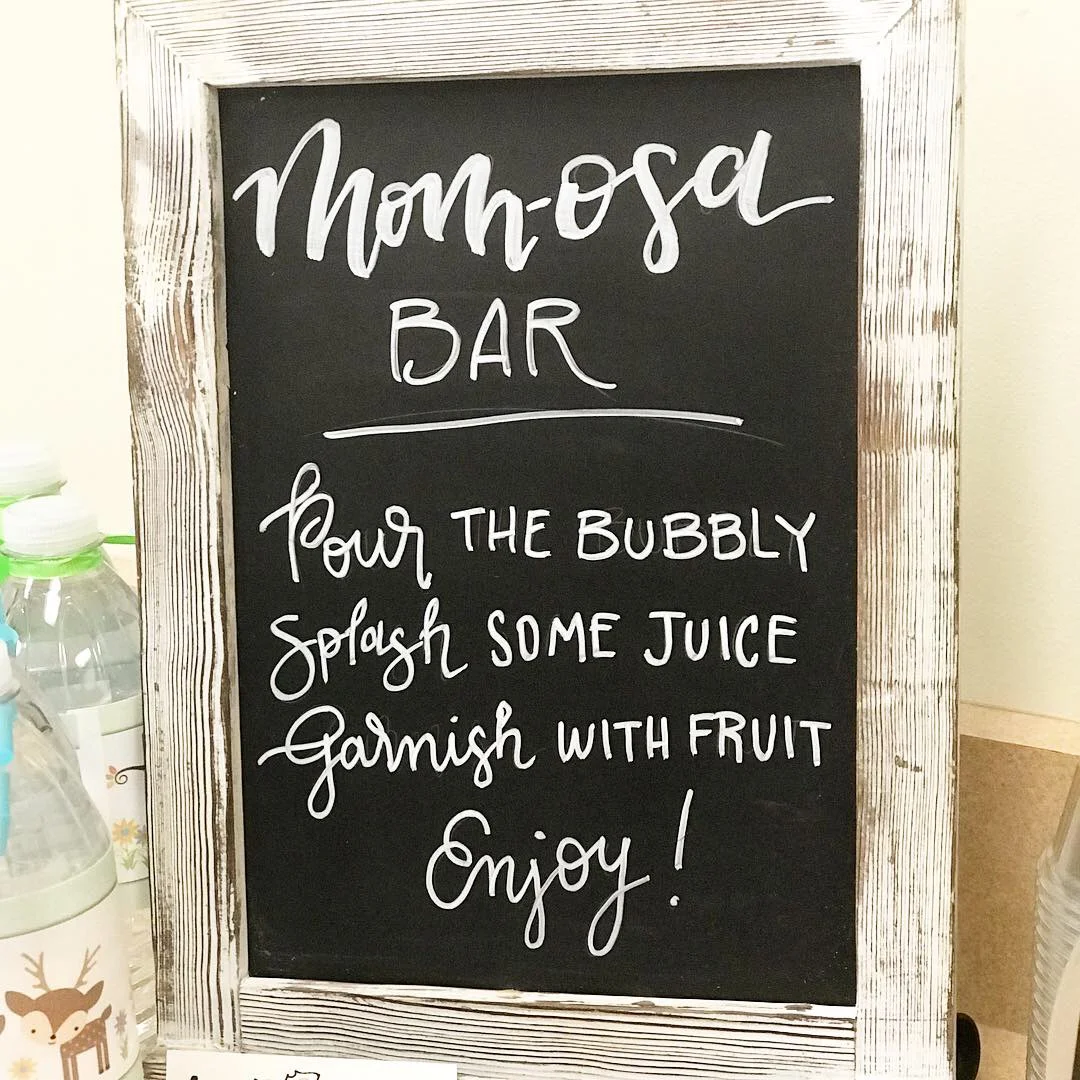 Mom-osa
BAR
Pour THE BUBBLY
Splash SOME JUICE
Garnish WITH FRUIT
Enjoy!